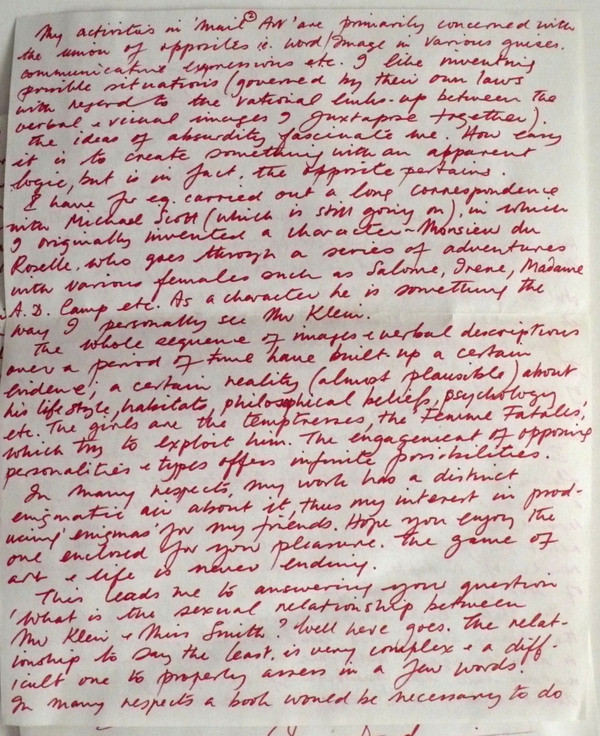 My activities in 'Mail Art' are primarily concerned with
the union of opposites i.e. word/image in various guises.
communicative expressions etc. I like inventing
possible situations (governed by their own laws
with regard to the rational links-up between the
verbal & visual images I juxtapose together).
the ideas of absurdity fascinate me. How easy
it is to create something with an apparent
logic, but is in fact, the opposite pertains.
I have for eg. carried out a long correspondence
with Michael Scott (which is still going on), in which
I originally invented a character - Monsieur du
Roselle, who goes through a series of adventures
with various females such as Salome, Irene, Madame
A.D. Camp etc. As a character he is something the
way I personally see Mr Klein.
The whole sequence of images & verbal descriptions
over a period of time have built up a certain
evidence, a certain reality (almost plausible) about
his lifestyle, habitats, philosophical beliefs, psychology
etc. The girls are the temptresses, the 'Femme Fatales,'
which try to exploit him. The engagement of opposing
personalities & types offers infinite possibilities.
In many respects, my work has a distinct
enigmatic air about it, thus my interest in prod-
ucing 'enigmas' for my friends. Hope you enjoy the
one enclosed for your pleasure. The game of
art & life is never ending.
This leads me to answering your question
'What is the sexual relationship between
Mr Klein & Miss Smith? Well here goes. The relat-
ionship to say the least, is very complex & a diff-
icult one to properly assess in a few words.
In many respects a book would be necessary to do